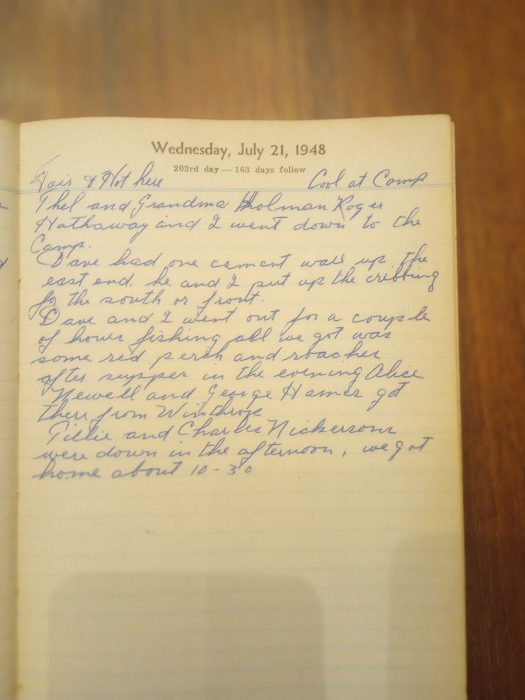 Wednesday, July 21, 1948
203rd day — 163 days follow
Fair & Hot here Cool at Camp
Thel and Grandma Holman Roger
Hathaway and I went down to the
Camp.
Dave had one cement wall up the
east end. he and I put up the cribbing
for the south or front.
Dave and I went out for a couple
of hours fishing all we got was
some red perch and roaches
after supper in the evening Alice
Newell and George Hamer got
there from Winthrope
Tillie and Charles Nickersons
were down in the afternoon, we got
home about 10-30